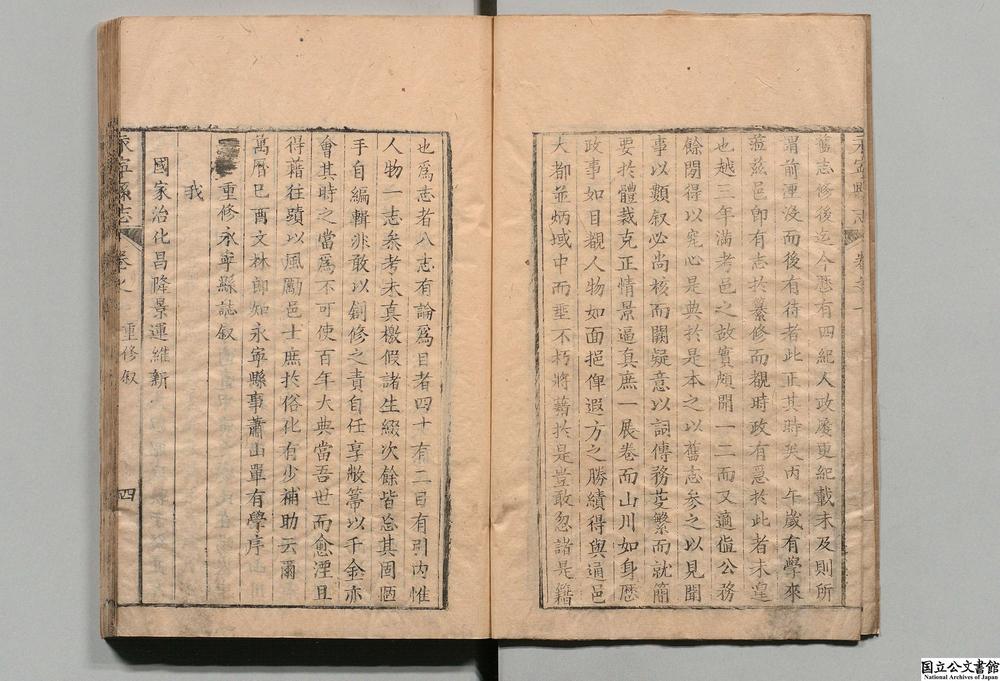 舊志修後迄今歷有四紀人政屢更紀載未及則所
謂前湮沒而後有待者此正其時矣丙午歲有學來
蒞茲邑卽有志於纂修而覩時政有急於此者未遑
也越三年滿考邑之故實頗聞一二而又適值公務
餘閒得以究心是典於是本之以舊志參之以見聞
事以類叙必尚核而闕疑意以詞傳務芟繁而就簡
要於體裁克正情景逼真庶一展卷而山川如身歷
政事如目覩人物如面挹俾遐方之勝績得與通邑
大都並炳域中而垂不朽將藉於是豈敢忽諸是籍
永寧縣志 卷之一
也爲志者八志有論爲目者四十有二目有引內惟
人物一志叅考未真檄假諸生綴次餘皆忘其固陋
手自編輯非敢以創修之責自任享敝箒以千金亦
會其時之當爲不可使百年大典當吾世而愈湮且
得藉往蹟以風勵邑士庶於俗化有少補助云爾
萬曆己酉文林郎知永寧縣事蕭山單有學序
重修永寧縣誌叙
我
國家治化昌隆景運維新
永寧縣志 卷之一 重修叙 四
国立公文書館
National Archives of Japan